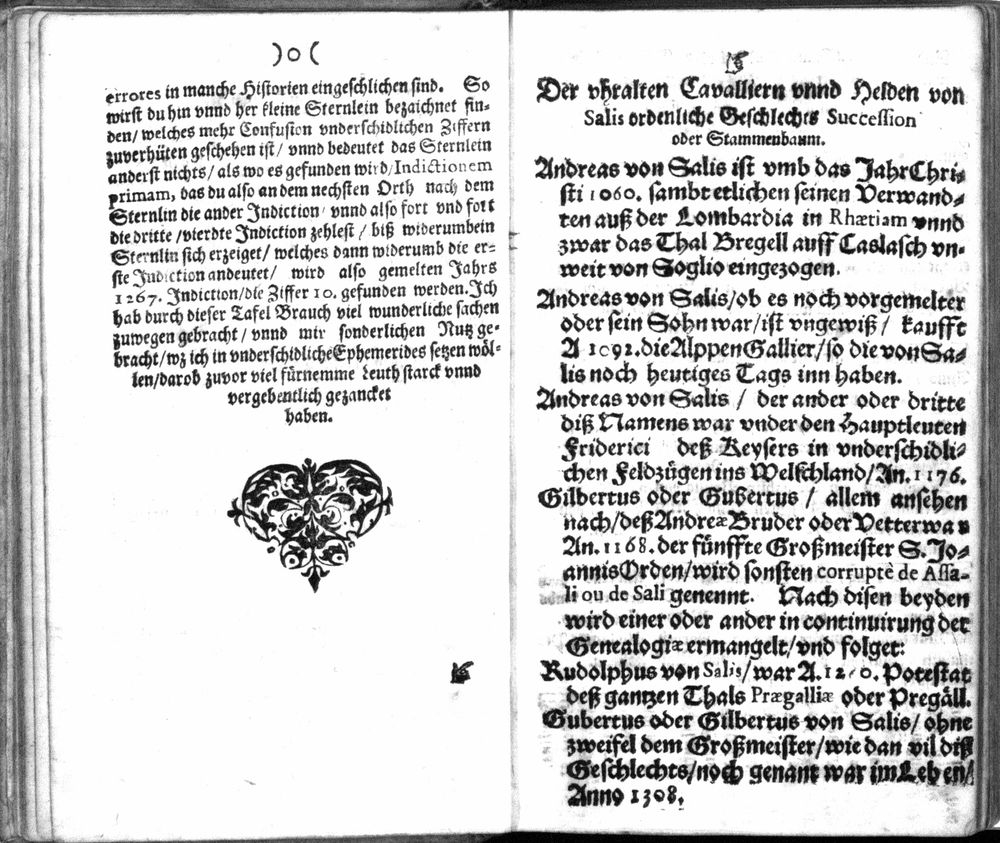 )o(
errores in manche Historien eingeschlichen sind. So
wirst du hin vnnd her kleine Sternlein bezaichnet fin-
den/ welches mehr Confusion vnderschidlichen Ziffern
zuverhüten geschehen ist/ vnnd bedeutet das Sternlein
anderst nichts/ als wo es gefunden wird/ Indictionem
primam, das du also an dem nechsten Orth nach dem
Sternlin die ander Indiction vnnd also fort vnd fort
die dritte/ vierdte Indiction zehlest/ biß widerumb ein
Sternlin sich erzeiget/ welches dann widerumb die er-
ste Indiction andeutet/ wird also gemelten Jahrs
1267. Indiction/ die Ziffer 10. gefunden werden. Ich
hab durch dieser Tafel Brauch viel wunderliche sachen
zuwegen gebracht/ vnnd mir sonderlichen Nutz ge-
bracht/ wz ich in vnderschidliche Ephemerides setzen wöl-
len/ darob zuvor viel fürnemme Leuth starck vnnd
vergebentlich gezancket
haben.
Der vhralten Cavalliern vnnd Helden von
Salis ordenliche Geschlechts Succession
oder Stammenbaum.
Andreas von Salis ist vmb das Jahr Chri-
sti 1060. sambt etlichen seinen Verwand-
ten auß der Lombardia in Rhætiam vnnd
zwar das Thal Bregell auff Caslasch vn-
weit von Soglio eingezogen.
Andreas von Salis/ ob es noch vorgemelter
oder sein Sohn war/ ist vngewiß/ kaufft
A 1092. die Alppen Gallier/ so die von Sa-
lis noch heutiges Tags inn haben.
Andreas von Salis/ der ander oder dritte
diß Namens war vnder den Hauptleuten
Friderici deß Keysers in vnderschidli-
chen Feldzügen ins Welschland/ An. 1176.
Gilbertus oder Gubertus/ allem ansehen
nach/ deß Andreæ Bruder oder Vetter war
An. 1168. der fünffte Großmeister S. Jo-
annis Orden/ wird sonsten corruptè de Assa-
li ou de Sali genennt. Nach disen beyden
wird einer oder ander in continuirung der
Genealogiæ ermangelt/ vnd folget:
Rudolphus von Salis/ war A. Potestat
deß gantzen Thals Prægalliæ oder Pregäll.
Gubertus oder Gilbertus von Salis/ ohne
zweifel dem Großmeister/ wie dan vil diß
Geschlechts/ noch genant war im Leben/
Anno 1308.